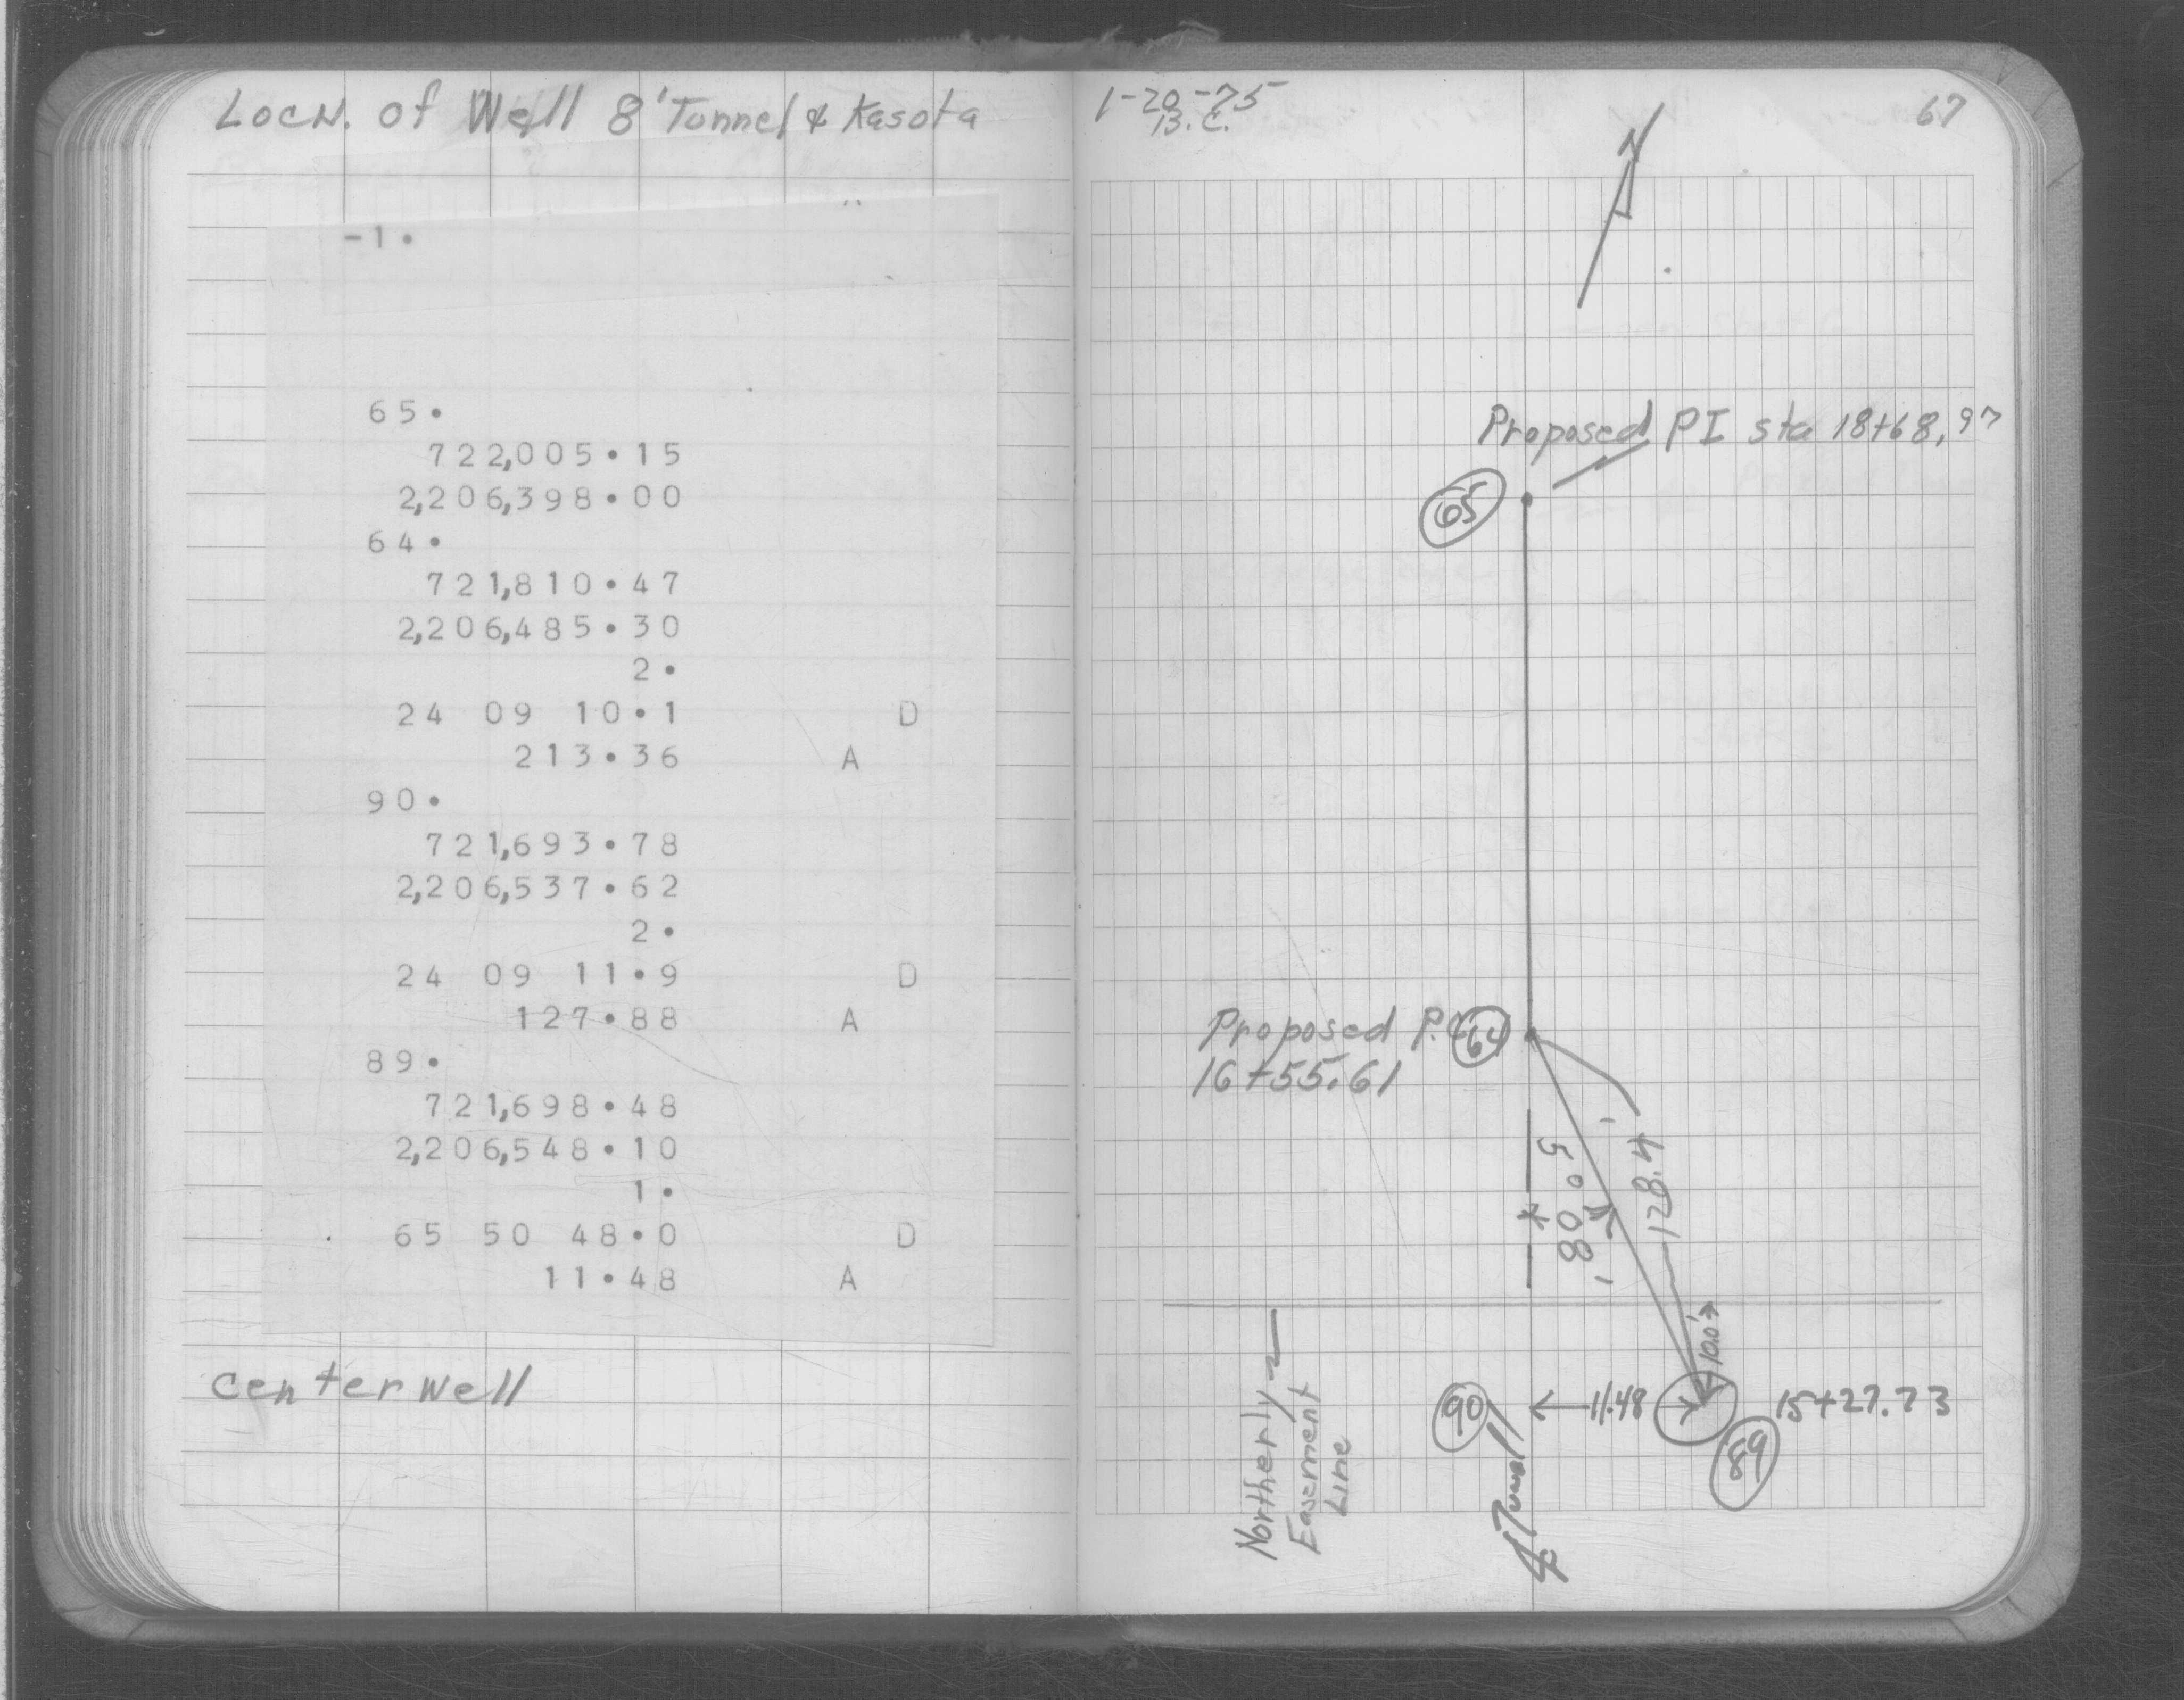 Locn. of Well 8' Tunnel & Kasota
-1.
65.
722,005.15
2,206,398.00
64.
721,810.47
2,206,485.30
2.
24 09 10.1 D
213.36 A
90.
721,693.78
2,206,537.62
2.
24 09 11.9 D
127.88 A
89.
721,698.48
2,206,548.10
1.
65 50 48.0 D
11.48 A
center well
1-20-75
B.C.
67
N
Proposed PI sta 18+68.97
65
Proposed P.C.
64
16+55.61
5° 08'
128.4'
10.0'
90
11.48
15+27.73
89
Northerly
Easement
Line
℄ Tunnel